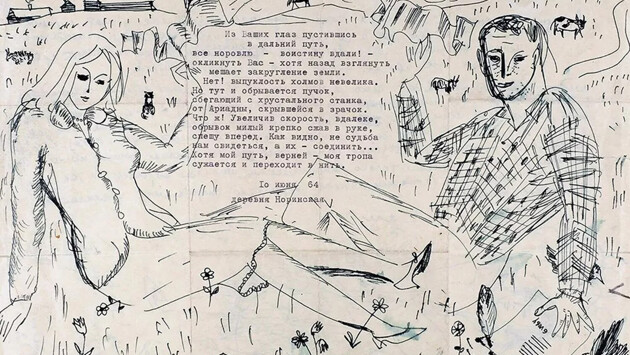 Из Ваших глаз пустившись
в дальний путь,
все норовлю - воистину вдали! -
окликнуть Вас - хотя назад взглянуть
мешает закругление земли.
Нет! выпуклость холмов невелика.
Но тут и обрывается пучок,
сбегающий с хрустального станка,
от Ариадны, скрывшейся в зрачок.
Что ж! Увеличив скорость, вдалеке,
обрывок милый крепко сжав в руке,
спешу вперед. Как видно, не судьба
нам свидеться, а их - соединить...
Хотя мой путь, верней - моя тропа
сужается и переходит в нить.
10 июня 64
деревня Норинская